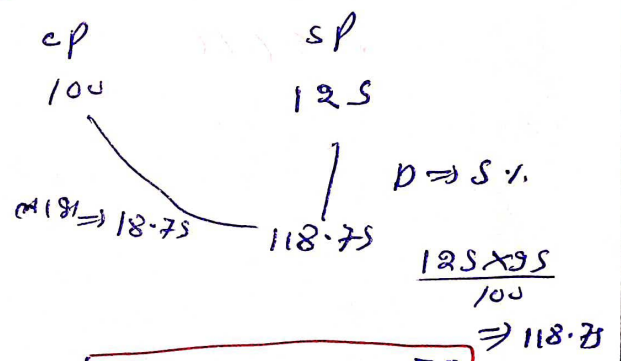 CP SP
100 125
D ⇒ 5 %
⇒ 18.75 118.75
125 × 95
100
⇒ 118.75